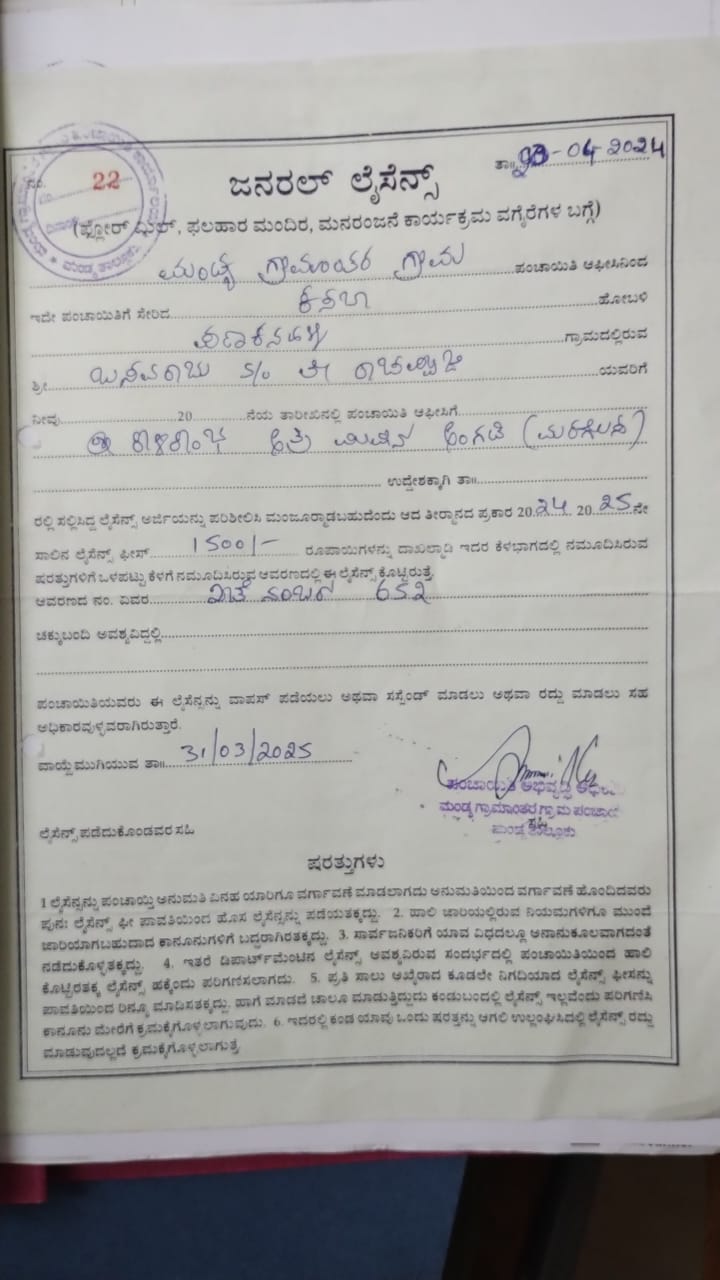 ನಂ. 22
ತಾ॥ 03-04-2024
ಜನರಲ್ ಲೈಸೆನ್ಸ್
(ಫ್ಲೋರ್ ಮಿಲ್, ಫಲಹಾರ ಮಂದಿರ, ಮನರಂಜನೆ ಕಾರ್ಯಕ್ರಮ ವಗೈರೆಗಳ ಬಗ್ಗೆ)
ಮಂಡ್ಯ ಗ್ರಾಮಾಂತರ ಗ್ರಾಮ ಪಂಚಾಯಿತಿ ಆಫೀಸಿನಿಂದ
ಇದೇ ಪಂಚಾಯಿತಿಗೆ ಸೇರಿದ ಕಸಬಾ ಹೋಬಳಿ
ಗ್ರಾಮದಲ್ಲಿರುವ
ಶ್ರೀ ಬಸವರಾಜು S/o ಯವರಿಗೆ
ನೀವು 20 ನೆಯ ತಾರೀಖಿನಲ್ಲಿ ಪಂಚಾಯಿತಿ ಆಫೀಸಿಗೆ
ಹತ್ರ ಅಂಗಡಿ
ಉದ್ದೇಶಕ್ಕಾಗಿ ತಾ॥
ರಲ್ಲಿ ಸಲ್ಲಿಸಿದ್ದ ಲೈಸೆನ್ಸ್ ಅರ್ಜಿಯನ್ನು ಪರಿಶೀಲಿಸಿ ಮಂಜೂರ್ಮಾಡಬಹುದೆಂದು ಆದ ತೀರ್ಮಾನದ ಪ್ರಕಾರ 2024 2025ನೇ
ಸಾಲಿನ ಲೈಸೆನ್ಸ್ ಫೀಸ್ 1500/- ರೂಪಾಯಿಗಳನ್ನು ದಾಖಲ್ಮಾಡಿ ಇದರ ಕೆಳಭಾಗದಲ್ಲಿ ನಮೂದಿಸಿರುವ
ಷರತ್ತುಗಳಿಗೆ ಒಳಪಟ್ಟು ಕೆಳಗೆ ನಮೂದಿಸಿರುವ ಆವರಣದಲ್ಲಿ ಈ ಲೈಸೆನ್ಸ್ ಕೊಟ್ಟಿರುತ್ತೆ.
ಆವರಣದ ನಂ. ವಿವರ ಖಾತೆ ನಂಬರ 652
ಚಕ್ಕುಬಂದಿ ಅವಶ್ಯವಿದ್ದಲ್ಲಿ
ಪಂಚಾಯಿತಿಯವರು ಈ ಲೈಸೆನ್ಸನ್ನು ವಾಪಸ್ ಪಡೆಯಲು ಅಥವಾ ಸಸ್ಪೆಂಡ್ ಮಾಡಲು ಅಥವಾ ರದ್ದು ಮಾಡಲು ಸಹ
ಅಧಿಕಾರವುಳ್ಳವರಾಗಿರುತ್ತಾರೆ.
ವಾಯ್ದೆಮುಗಿಯುವ ತಾ॥ 31/03/2025
ಪಂಚಾಯಿತಿ ಅಭಿವೃದ್ಧಿ
ಮಂಡ್ಯ ಗ್ರಾಮಾಂತರ ಗ್ರಾಮ ಪಂಚಾಯಿತಿ
ಸಹಿ
ಮಂಡ್ಯ ತಾಲ್ಲೂಕು
ಲೈಸೆನ್ಸ್ ಪಡೆದುಕೊಂಡವರ ಸಹಿ
ಷರತ್ತುಗಳು
1 ಲೈಸೆನ್ಸನ್ನು ಪಂಚಾಯ್ತಿ ಅನುಮತಿ ವಿನಹ ಯಾರಿಗೂ ವರ್ಗಾವಣೆ ಮಾಡಲಾಗದು ಅನುಮತಿಯಿಂದ ವರ್ಗಾವಣೆ ಹೊಂದಿದವರು
ಪುನಃ ಲೈಸೆನ್ಸ್ ಫೀ ಪಾವತಿಯಿಂದ ಹೊಸ ಲೈಸೆನ್ಸನ್ನು ಪಡೆಯತಕ್ಕದ್ದು. 2. ಹಾಲಿ ಜಾರಿಯಲ್ಲಿರುವ ನಿಯಮಗಳಿಗೂ ಮುಂದೆ
ಜಾರಿಯಾಗಬಹುದಾದ ಕಾನೂನುಗಳಿಗೆ ಬದ್ಧರಾಗಿರತಕ್ಕದ್ದು. 3. ಸಾರ್ವಜನಿಕರಿಗೆ ಯಾವ ವಿಧದಲ್ಲೂ ಅನಾನುಕೂಲವಾಗದಂತೆ
ನಡೆದುಕೊಳ್ಳತಕ್ಕದ್ದು. 4. ಇತರೆ ಡಿಪಾರ್ಟ್‌ಮೆಂಟಿನ ಲೈಸೆನ್ಸ್ ಅವಶ್ಯವಿರುವ ಸಂದರ್ಭದಲ್ಲಿ ಪಂಚಾಯಿತಿಯಿಂದ ಹಾಲಿ
ಕೊಟ್ಟಿರತಕ್ಕ ಲೈಸೆನ್ಸ್ ಹಕ್ಕೆಂದು ಪರಿಗಣಿಸಲಾಗದು. 5. ಪ್ರತಿ ಸಾಲು ಅಖೈರಾದ ಕೂಡಲೇ ನಿಗದಿಯಾದ ಲೈಸೆನ್ಸ್ ಫೀಸನ್ನು
ಪಾವತಿಯಿಂದ ರಿನ್ಯೂ ಮಾಡಿಸತಕ್ಕದ್ದು. ಹಾಗೆ ಮಾಡದೆ ಚಾಲೂ ಮಾಡುತ್ತಿದ್ದುದು ಕಂಡುಬಂದಲ್ಲಿ ಲೈಸೆನ್ಸ್ ಇಲ್ಲವೆಂದು ಪರಿಗಣಿಸಿ
ಕಾನೂನು ಮೇರೆಗೆ ಕ್ರಮಕೈಗೊಳ್ಳಲಾಗುವುದು. 6. ಇದರಲ್ಲಿ ಕಂಡ ಯಾವು ಒಂದು ಷರತ್ತನ್ನು ಆಗಲಿ ಉಲ್ಲಂಘಿಸಿದಲ್ಲಿ ಲೈಸೆನ್ಸ್ ರದ್ದು
ಮಾಡುವುದಲ್ಲದೆ ಕ್ರಮಕೈಗೊಳ್ಳಲಾಗುತ್ತೆ.